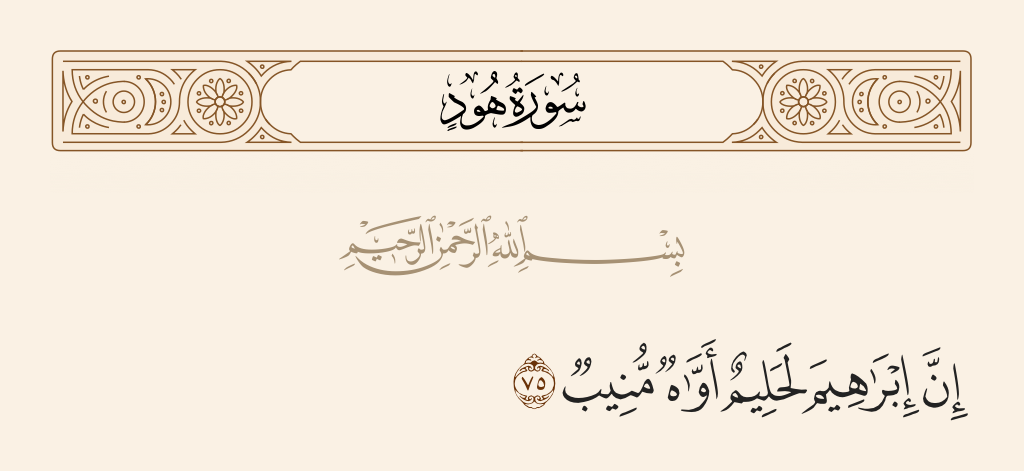 سُورَةُ هُودٍ
بِسْمِ ٱللَّهِ ٱلرَّحْمَٰنِ ٱلرَّحِيمِ
إِنَّ إِبْرَٰهِيمَ لَحَلِيمٌ أَوَّٰهٌ مُّنِيبٌ ٧٥